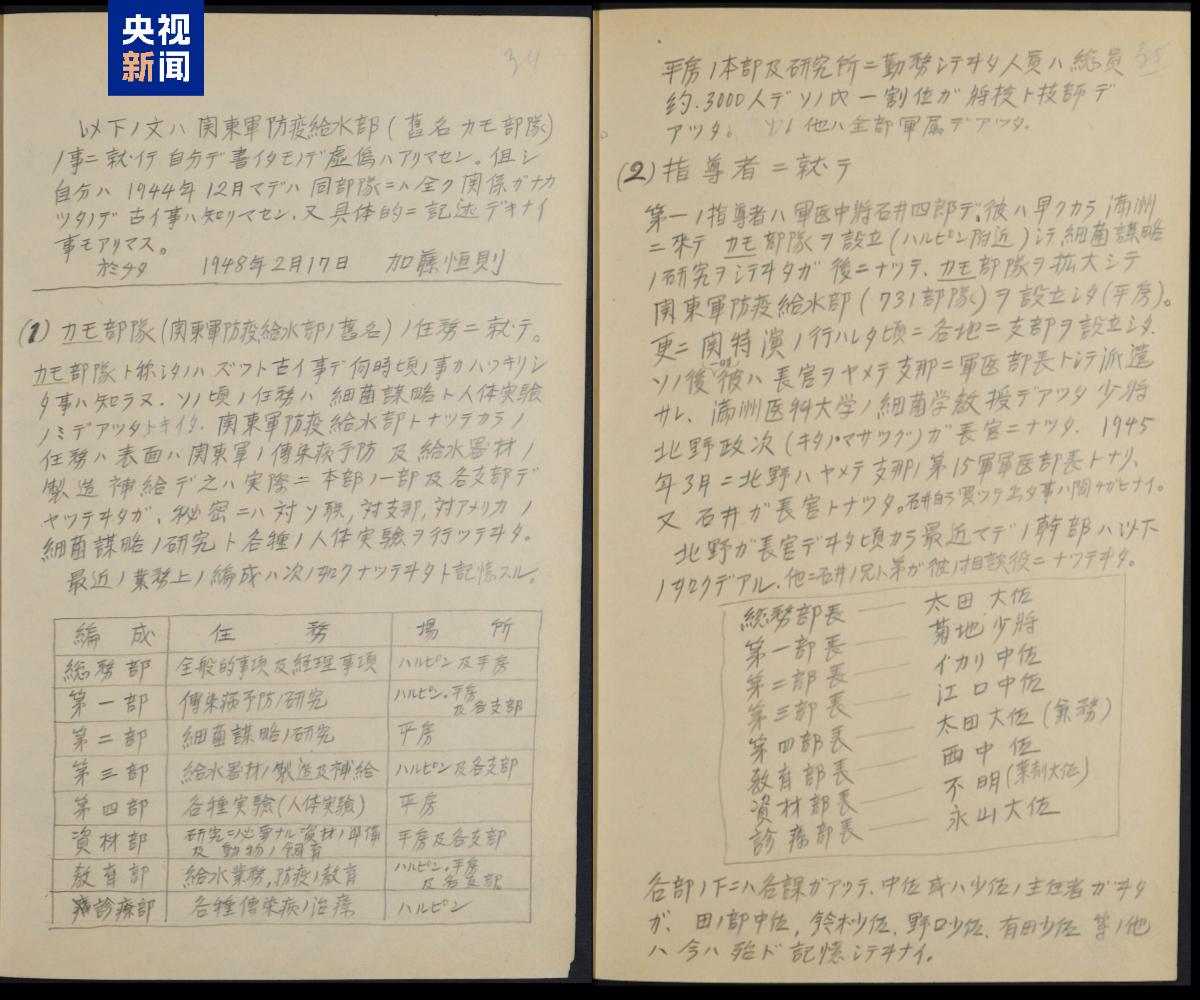 央视
新闻
34
以下ノ文ハ関東軍防疫給水部(舊名カモ部隊)
ノ事ニ就イテ自分デ書イタモノデ虚偽ハアリマセン。但シ
自分ハ1944年12月マデハ同部隊ニハ全ク関係ガナカ
ツタノデ古イ事ハ知リマセン.又具体的ニ記述デキナイ
事モアリマス。
於チタ 1948年2月17日 加藤恒則
(1) カモ部隊(関東軍防疫給水部ノ舊名)ノ任務ニ就テ。
カモ部隊ト称シタハズツト古イ事デ何時頃ノ事カハツキリシ
タ事ハ知ラヌ.ソノ頃ノ任務ハ細菌謀略ト人体実験
ノミデアツタトキイタ.関東軍防疫給水部トナツテカラノ
任務ハ表面ハ関東軍ノ傳染病予防及給水器材ノ
製造補給デ之ハ実際ニ本部ノ一部及各支部デ
ヤツテヰタガ、秘密ニハ対ソ聯,対支那,対アメリカノ
細菌謀略ノ研究ト各種ノ人体実験ヲ行ツテヰタ。
最近ノ業務上ノ編成ハ次ノ如クナツテヰタト記憶スル。
編成 任務 場所
総務部 全般的事項及経理事項 ハルピン及平房
第一部 傳染病予防ノ研究 ハルピン.平房及各支部
第二部 細菌謀略ノ研究 平房
第三部 給水器材ノ製造及補給 ハルピン及各支部
第四部 各種実験(人体実験) 平房
資材部 研究ニ必要ナル資材ノ準備及動物ノ飼育 平房及各支部
教育部 給水業務,防疫ノ教育 ハルピン.平房及各支部
診療部 各種傳染病ノ治療 ハルピン
35
平房ノ本部及研究所ニ勤務シテヰタ人員ハ総員
約.3000人デソノ内一割位ガ将校ト技師デ
アツタ。ソノ他ハ全部軍属デアツタ.
(2)指導者ニ就テ
第一ノ指導者ハ軍医中將石井四郎デ、彼ハ早クカラ満州
ニ來テカモ部隊ヲ設立(ハルピン附近)シテ細菌謀略
ノ研究ヲシテヰタガ後ニナツテ、カモ部隊ヲ拡大シテ
関東軍防疫給水部(731部隊)ヲ設立シタ(平房)。
更ニ関特演ノ行ハレタ頃ニ各地ニ支部ヲ設立シタ.
ソノ後一時彼ハ長官ヲヤメテ支那ニ軍医部長トシテ派遣
サレ、満州医科大学ノ細菌学教授デアツタ少將
北野政次(キタノマサツグ)ガ長官ニナツタ. 1945
年3月ニ北野ハヤメテ支那ノ第15軍軍医部長トナリ、
又石井ガ長官トナツタ。石井自ラ買ツテ出タ事ハ間チガヒナイ。
北野ガ長官デヰタ頃カラ最近マデノ幹部ハ以下
ノ如クデアル.他ニ石井ノ兄ト弟ガ彼ノ相談役ニナツテヰタ。
総務部長 ― 太田大佐
第一部長 ― 菊地少將
第二部長 ― イカリ中佐
第三部長 ― 江口中佐
第四部長 ― 太田大佐(兼務)
教育部長 ― 西中佐
資材部長 ― 不明(薬剤大佐)
診療部長 ― 永山大佐
各部ノ下ニハ各課ガアツテ、中佐或ハ少佐ノ主任者ガヰタ
ガ、田ノ部中佐,鈴木少佐、野口少佐、有田少佐等ノ他
ハ今ハ殆ド記憶シテヰナイ。